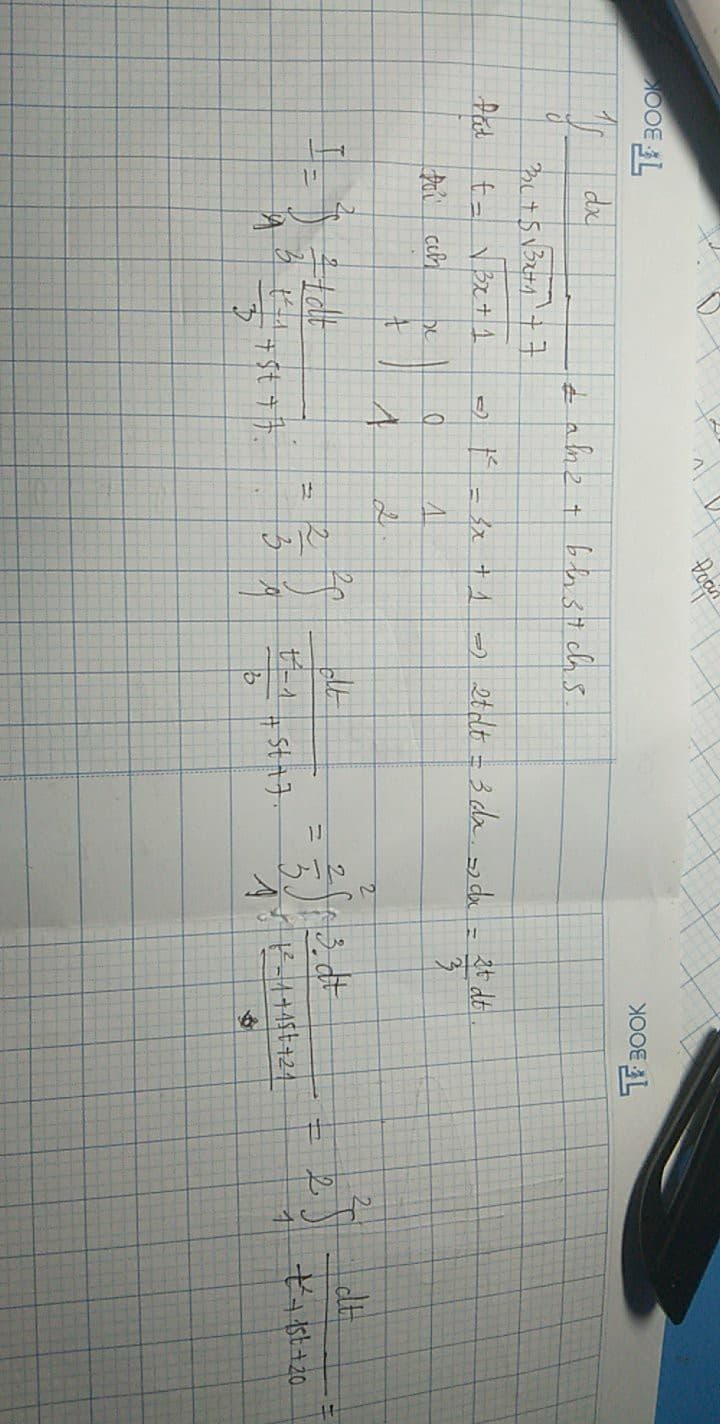 BOOK
BOOK
Đoàn
∫₀¹ dx / (3x + 5√(3x+1) + 7) = a ln 2 + b ln 3 + c ln 5.
Đặt t = √(3x + 1) ⇒ t² = 3x + 1 ⇒ 2t dt = 3 dx. ⇒ dx = 2t/3 dt.
Đổi cận x | 0 1
t | 1 2.
I = ∫₁² (2/3 t dt) / ((t²-1)/3 + 5t + 7). = 2/3 ∫₁² dt / ((t²-1)/3 + 5t + 7). = 2/3 ∫₁² 3.dt / (t² - 1 + 15t + 21) = 2 ∫₁² dt / (t² + 15t + 20) =